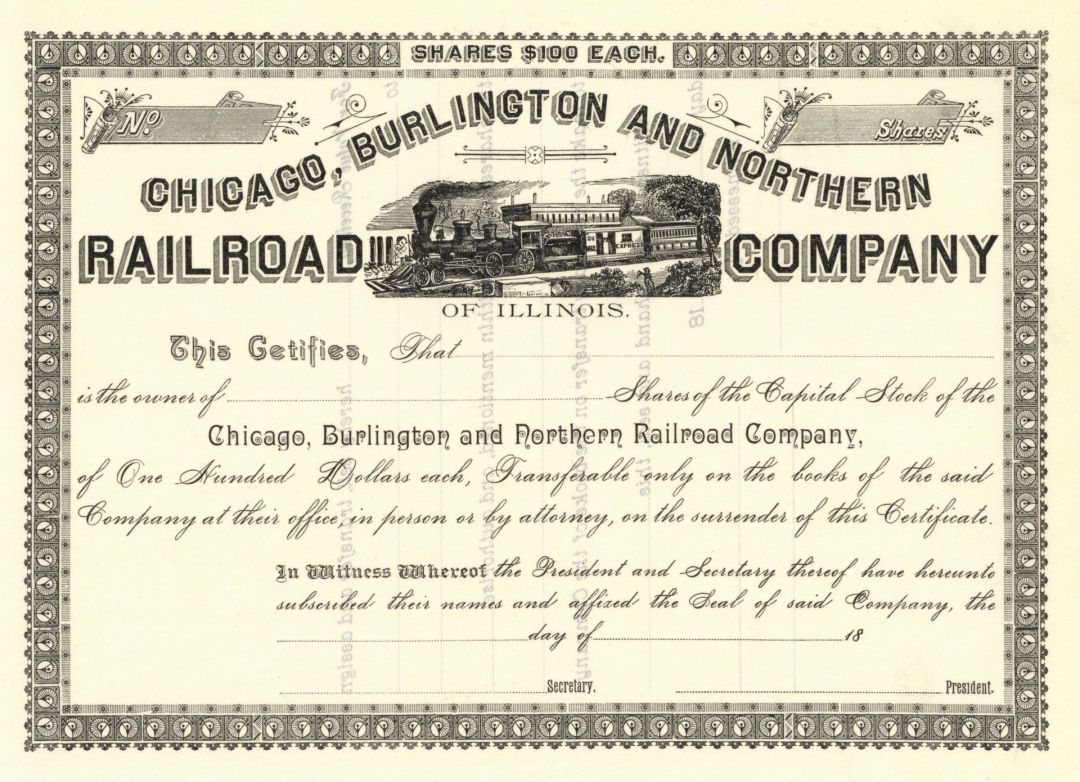 SHARES $100 EACH.
No.
Shares
CHICAGO, BURLINGTON AND NORTHERN
RAILROAD COMPANY
EXPRESS
OF ILLINOIS.
This Cetifies, That
is the owner of Shares of the Capital Stock of the
Chicago, Burlington and Northern Railroad Company,
of One Hundred Dollars each, Transferable only on the books of the said
Company at their office, in person or by attorney, on the surrender of this Certificate.
In Witness Whereof the President and Secretary thereof have hereunto
subscribed their names and affixed the Seal of said Company, the
day of 18
Secretary. President.